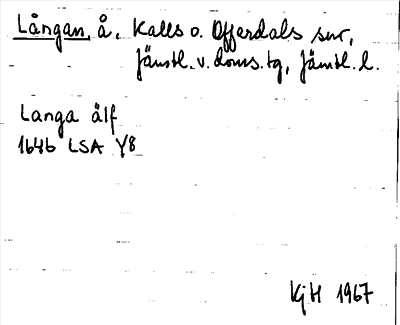 Långan, å, Kalls o. Offerdals snr,
Jämtl. v. doms. tg, Jämtl. l.
Langa älf
1646 LSA Y8
KjH 1967